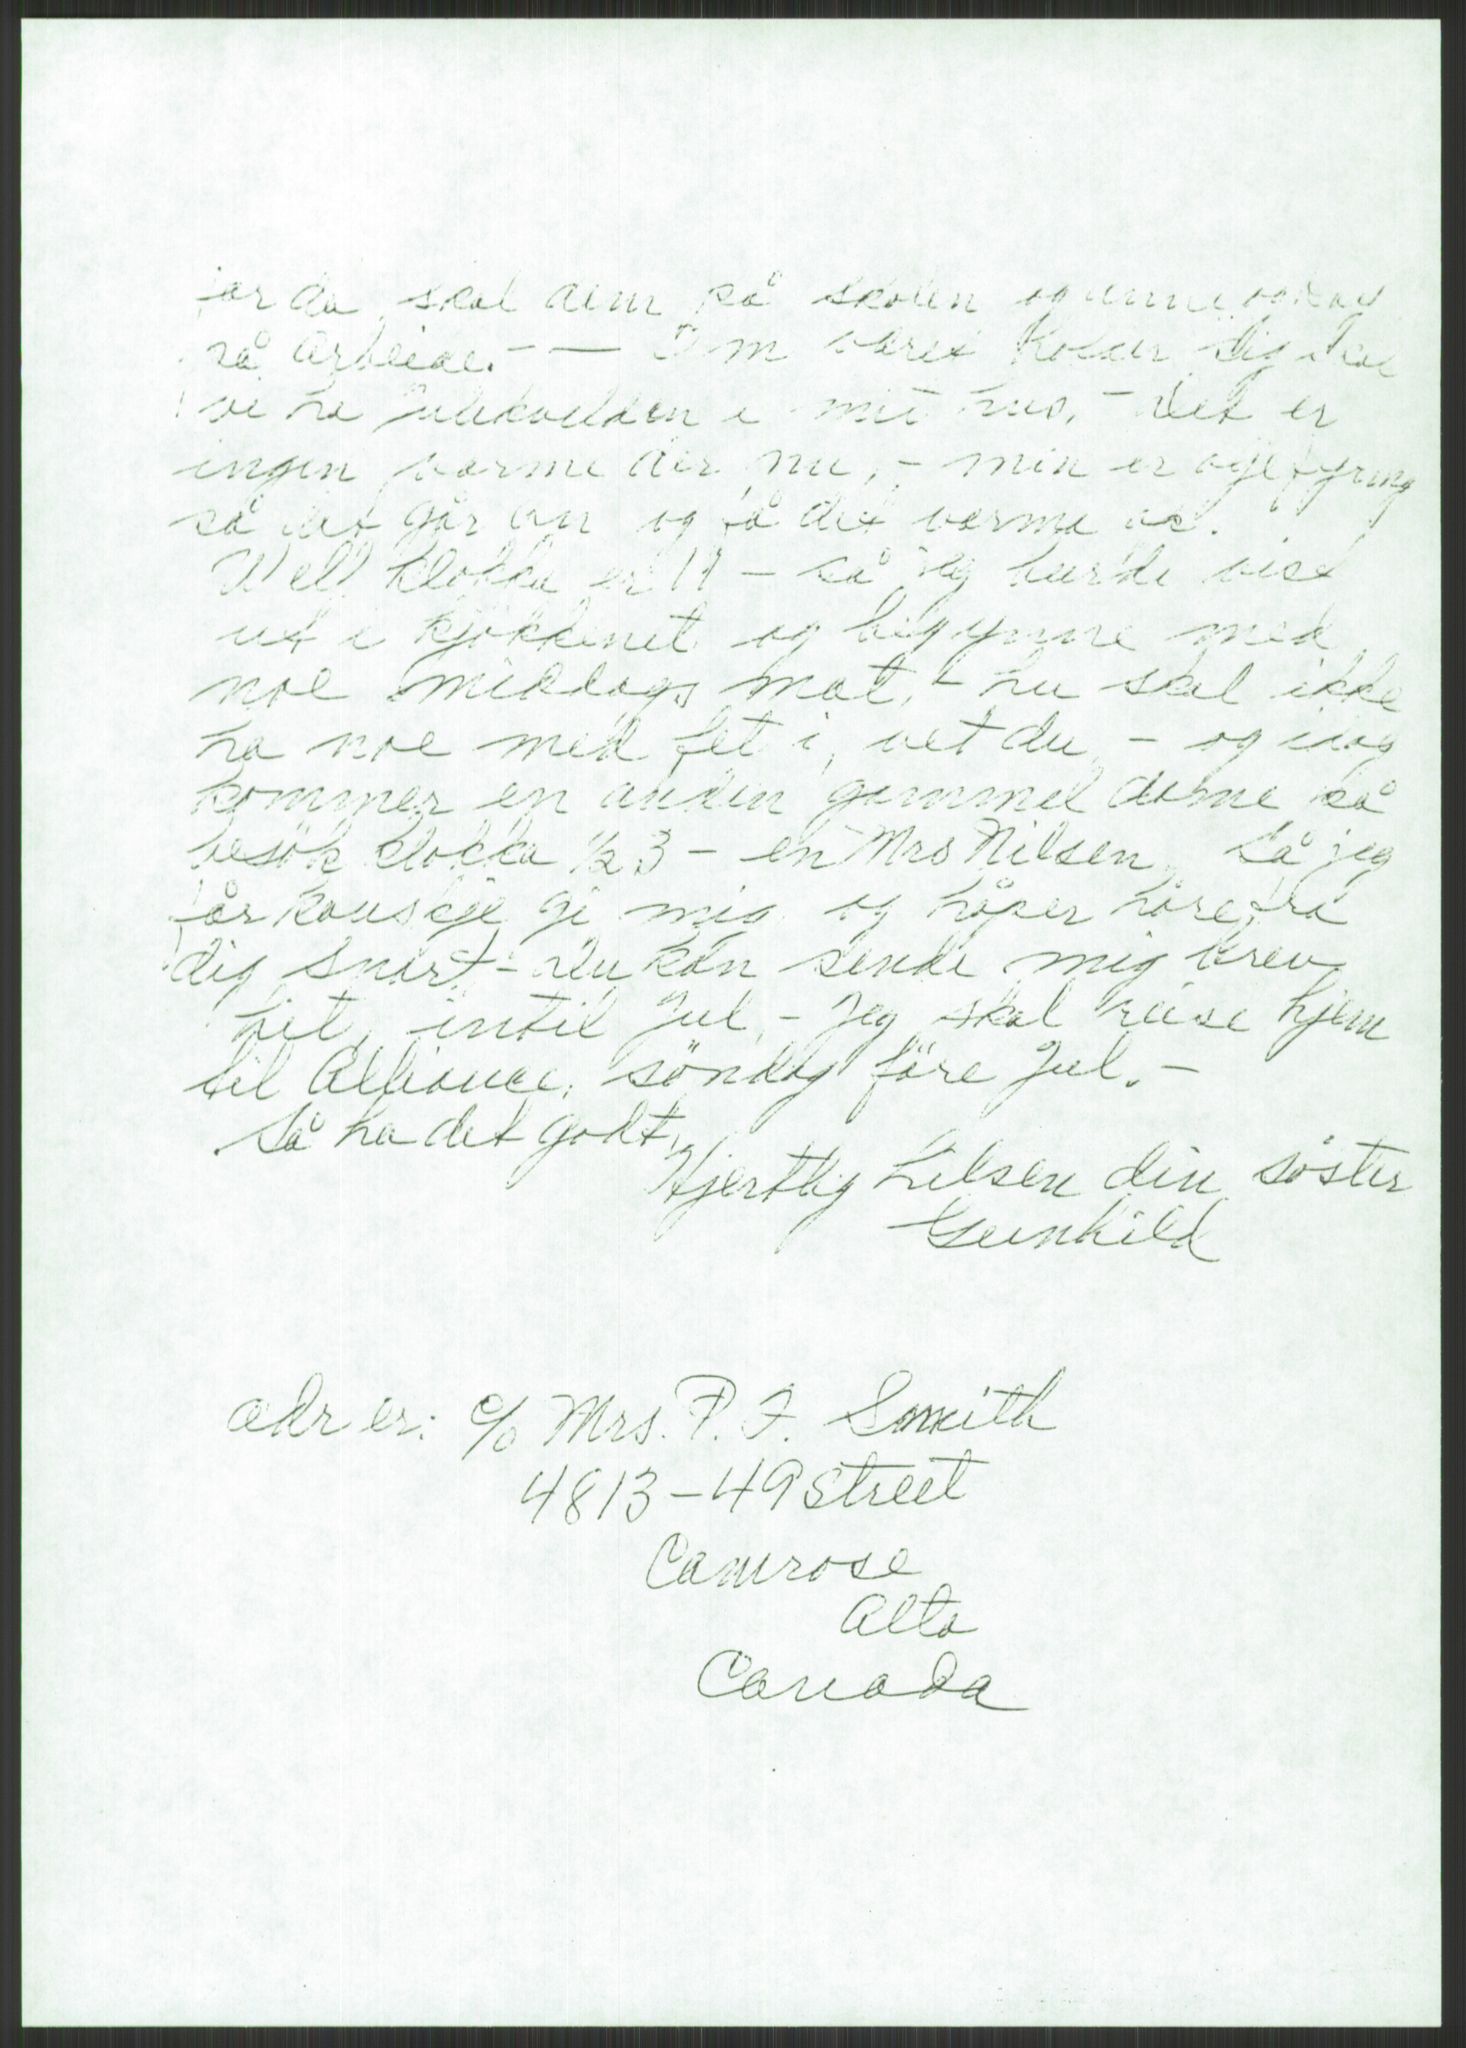 for da skal dem på skolen og
så arbeide. — Om været holder sig skal
vi ha julekvelden i mit hus, - det er
ingen varme der nu, - min er oljefyring
så det går an og få det varmt
Well klokka er 11 - så jeg burde vist
ut i kjøkkenet og begynne med
noe middags mat, - hu skal ikke
ha noe med fet i, vet du - og idag
kommer en anden gammel dame på
besök klokka ½ 3 - en Mrs Nilsen, Så jeg
får kanskje gi mig og håper höre fra
dig snart - du kan sende mig brev
hit, intil Jul, - Jeg skal reise hjem
til Alliance, söndag före Jul. -
Så ha det godt,
Hjertlig hilsen din söster
Gunhild
adr er: c/o Mrs. P. F. Smith
4813-49 Street
Camrose
Alta
Canada